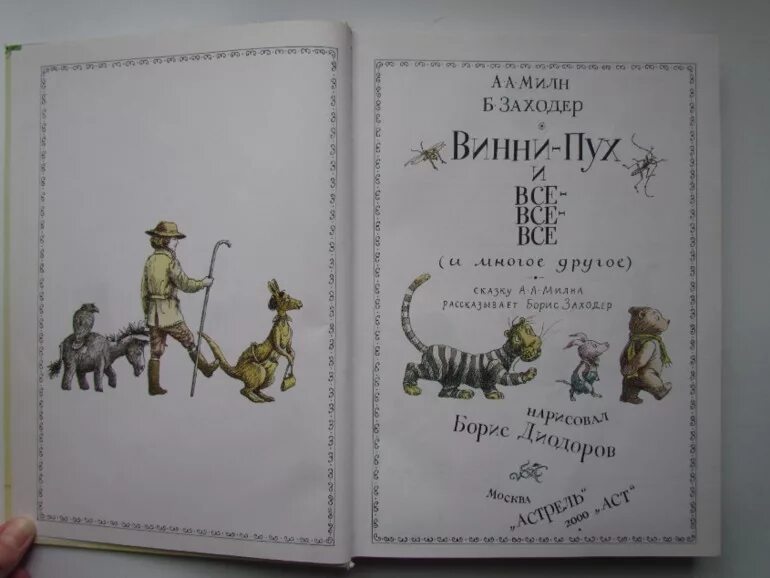 А.А.МИЛН
Б.ЗАХОДЕР
ВИННИ-ПУХ
И
ВСЕ-
ВСЕ-
ВСЕ
(и многое другое)
СКАЗКУ А.А.МИЛНА
РАССКАЗЫВАЕТ БОРИС ЗАХОДЕР
НАРИСОВАЛ
БОРИС ДИОДОРОВ
МОСКВА
„АСТРЕЛЬ"
2000 „АСТ"